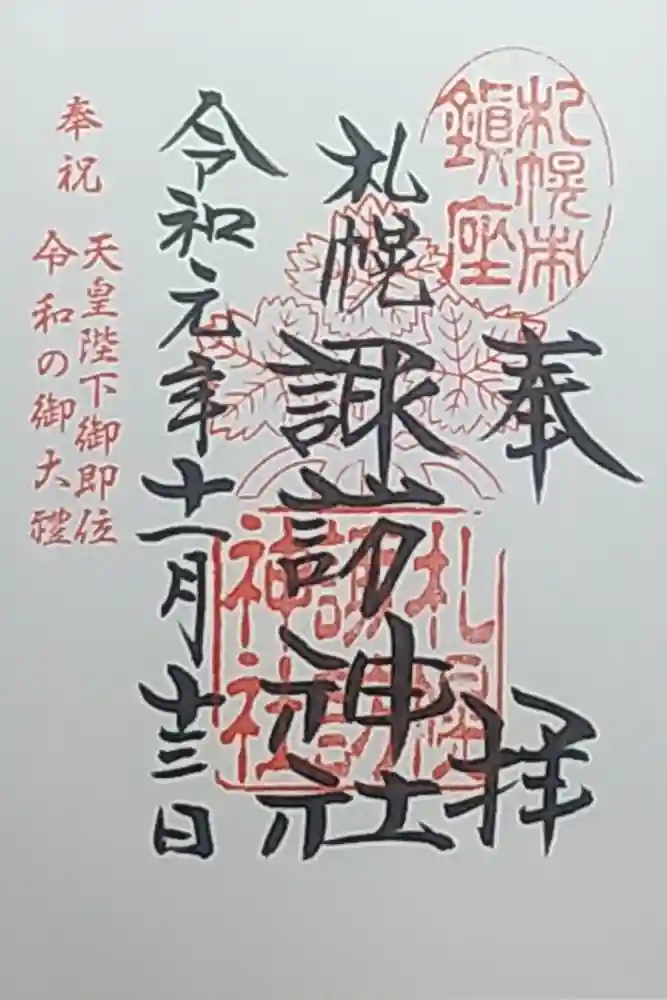 札幌市
鎮座
奉拝
札幌諏訪神社
札幌
諏訪
神社
令和元年十一月十三日
奉祝
天皇陛下御即位
令和の御大禮